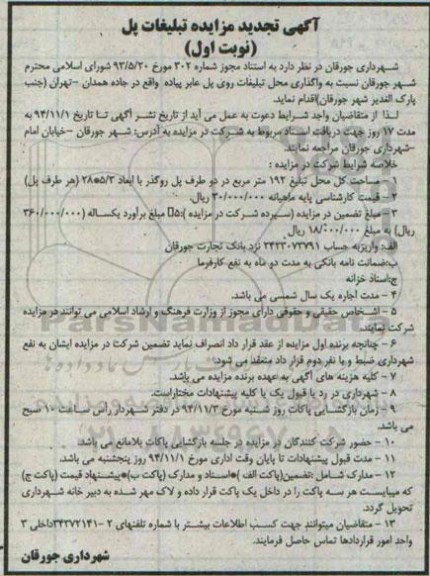 آگهی تجدید مزایده تبلیغات پل
(نوبت اول)
شهرداری جورقان در نظر دارد به استناد مجوز شماره ۳۰۲ مورخ ۹۳/۵/۲۰ شورای اسلامی محترم
شهر جورقان نسبت به واگذاری محل تبلیغات روی پل عابر پیاده واقع در جاده همدان -تهران (جنب
پارک الغدیر شهر جورقان)اقدام نماید.
لذا از متقاضیان واجد شرایط دعوت به عمل می آید از تاریخ نشر آگهی تا تاریخ ۹۴/۱۱/۱ به
مدت ۱۷ روز جهت دریافت اسناد مربوط به شرکت در مزایده به آدرس: شهر جورقان -خیابان امام
-شهرداری جورقان مراجعه نمایند.
خلاصه شرایط شرکت در مزایده :
۱- مساحت کل محل تبلیغ ۱۹۲ متر مربع در دو طرف پل روگذر با ابعاد ۵/۳*۲۸ (هر طرف پل)
۲- قیمت کارشناسی پایه ماهیانه ۳۰/۰۰۰/۰۰۰ ریال.
۳- مبلغ تضمین در مزایده (سپرده شرکت در مزایده ):۵ مبلغ برآورد یکساله (۳۶۰/۰۰۰/۰۰۰
ریال) به مبلغ ۱۸/۰۰۰/۰۰۰ ریال
الف: واریزبه حساب ۲۴۲۳۰۷۳۷۹۱ نزد بانک تجارت جورقان
ب:ضمانت نامه بانکی به مدت دو ماه به نفع کارفرما
ج:اسناد خزانه
۴- مدت اجاره یک سال شمسی می باشد.
۵- اشخاص حقیقی و حقوقی دارای مجوز از وزارت فرهنگ و ارشاد اسلامی می توانند در مزایده
شرکت نمایند.
۶- چنانچه برنده اول مزایده از عقد قرار داد انصراف نماید تضمین شرکت در مزایده ایشان به نفع
شهرداری ضبط و با نفر دوم قرار داد منعقد می شود.
۷- کلیه هزینه های آگهی به عهده برنده مزایده می باشد.
۸- شهرداری در رد یا قبول یک یا کلیه پیشنهادات مختاراست.
۹- زمان بازگشایی پاکات روز شنبه مورخ ۹۴/۱۱/۳ در دفتر شهردار راس ساعت ۱۰ صبح
می باشد.
۱۰- حضور شرکت کنندگان در مزایده در جلسه بازگشایی پاکات بلامانع می باشد.
۱۱- مدت قبول پیشنهادات تا پایان وقت اداری مورخ ۹۴/۱۱/۱ روز پنجشنبه می باشد.
۱۲- مدارک شامل :تضمین(پاکت الف )*اسناد و مدارک (پاکت ب)*پیشنهاد قیمت (پاکت ج)
که میبایست هر سه پاکت را در داخل یک پاکت قرار داده و لاک مهر شده به دبیر خانه شهرداری
تحویل گردد.
۱۳- متقاضیان میتوانند جهت کسب اطلاعات بیشتر با شماره تلفنهای ۲-۳۴۳۷۲۱۴۱داخلی ۳
واحد امور قراردادها تماس حاصل فرمایند.
شهرداری جورقان